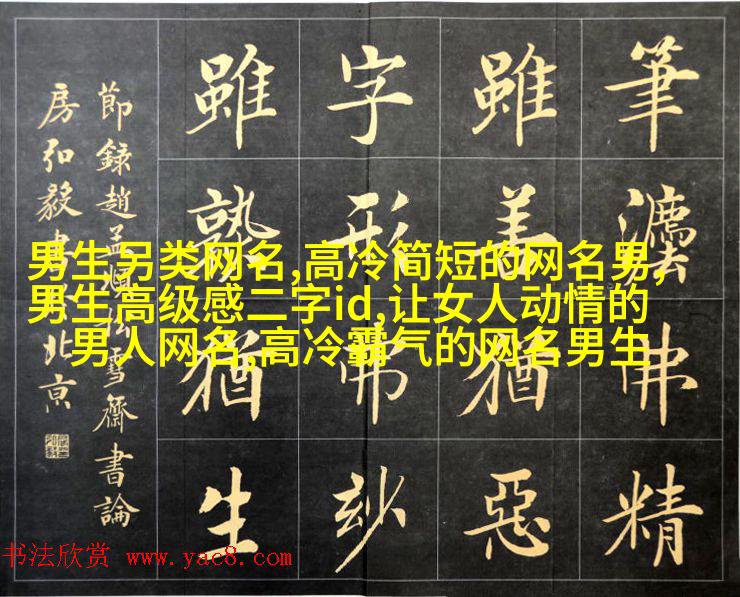 筆灋弗精
雖善猶惡
字形弗玅
雖熟猶生
節錄趙孟頫松雪齋書論
房弘毅書於北京
男生另类网名,高冷简短的网名男,
男生高级感二字id,让女人动情的
男人网名,高冷霸气的网名男生
书法欣赏 www.yac8.com